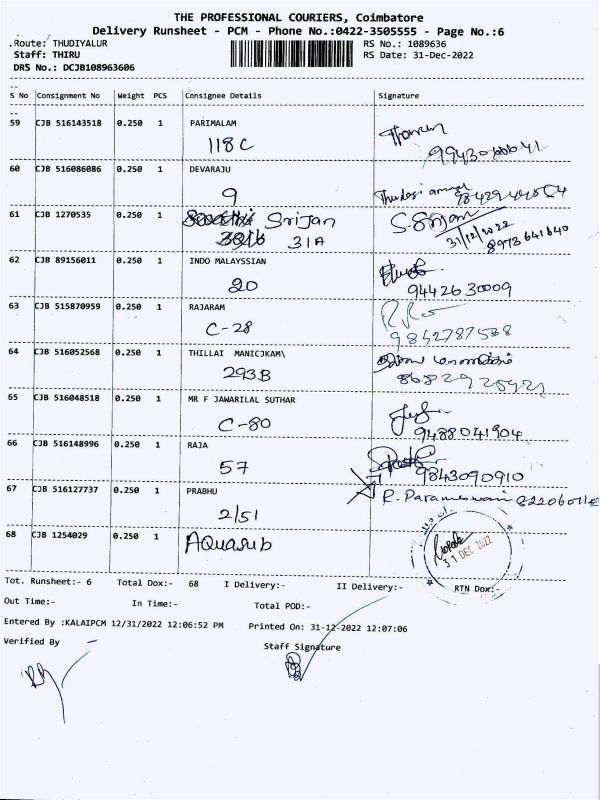 THE PROFESSIONAL COURIERS, Coimbatore
Delivery Runsheet - PCM - Phone No.:0422-3505555 - Page No.:6
Route: THUDIYALUR RS No.: 1089636
Staff: THIRU RS Date: 31-Dec-2022
DRS No.: DCJB108963606
S No Consignment No Weight PCS Consignee Details Signature
59 CJB 516143518 0.250 1 PARIMALAM
118C
60 CJB 516086086 0.250 1 DEVARAJU
9
61 CJB 1270535 0.250 1 Srijan S. Srijan
31A 31/12/2022
8973641640
62 CJB 89156011 0.250 1 INDO MALAYSSIAN
20 9442630009
63 CJB 515870959 0.250 1 RAJARAM
C-28 9842787568
64 CJB 516052568 0.250 1 THILLAI MANICJKAM\
293B
65 CJB 516048518 0.250 1 MR F JAWARILAL SUTHAR
C-80 9488041904
66 CJB 516148996 0.250 1 RAJA
57 9843090910
67 CJB 516127737 0.250 1 PRABHU R. Parameswari
2/51
68 CJB 1254029 0.250 1 Aquasub
31 DEC 2022
Tot. Runsheet:- 6 Total Dox:- 68 I Delivery:- II Delivery:- RTN Dox:-
Out Time:- In Time:- Total POD:-
Entered By :KALAIPCM 12/31/2022 12:06:52 PM Printed On: 31-12-2022 12:07:06
Verified By Staff Signature